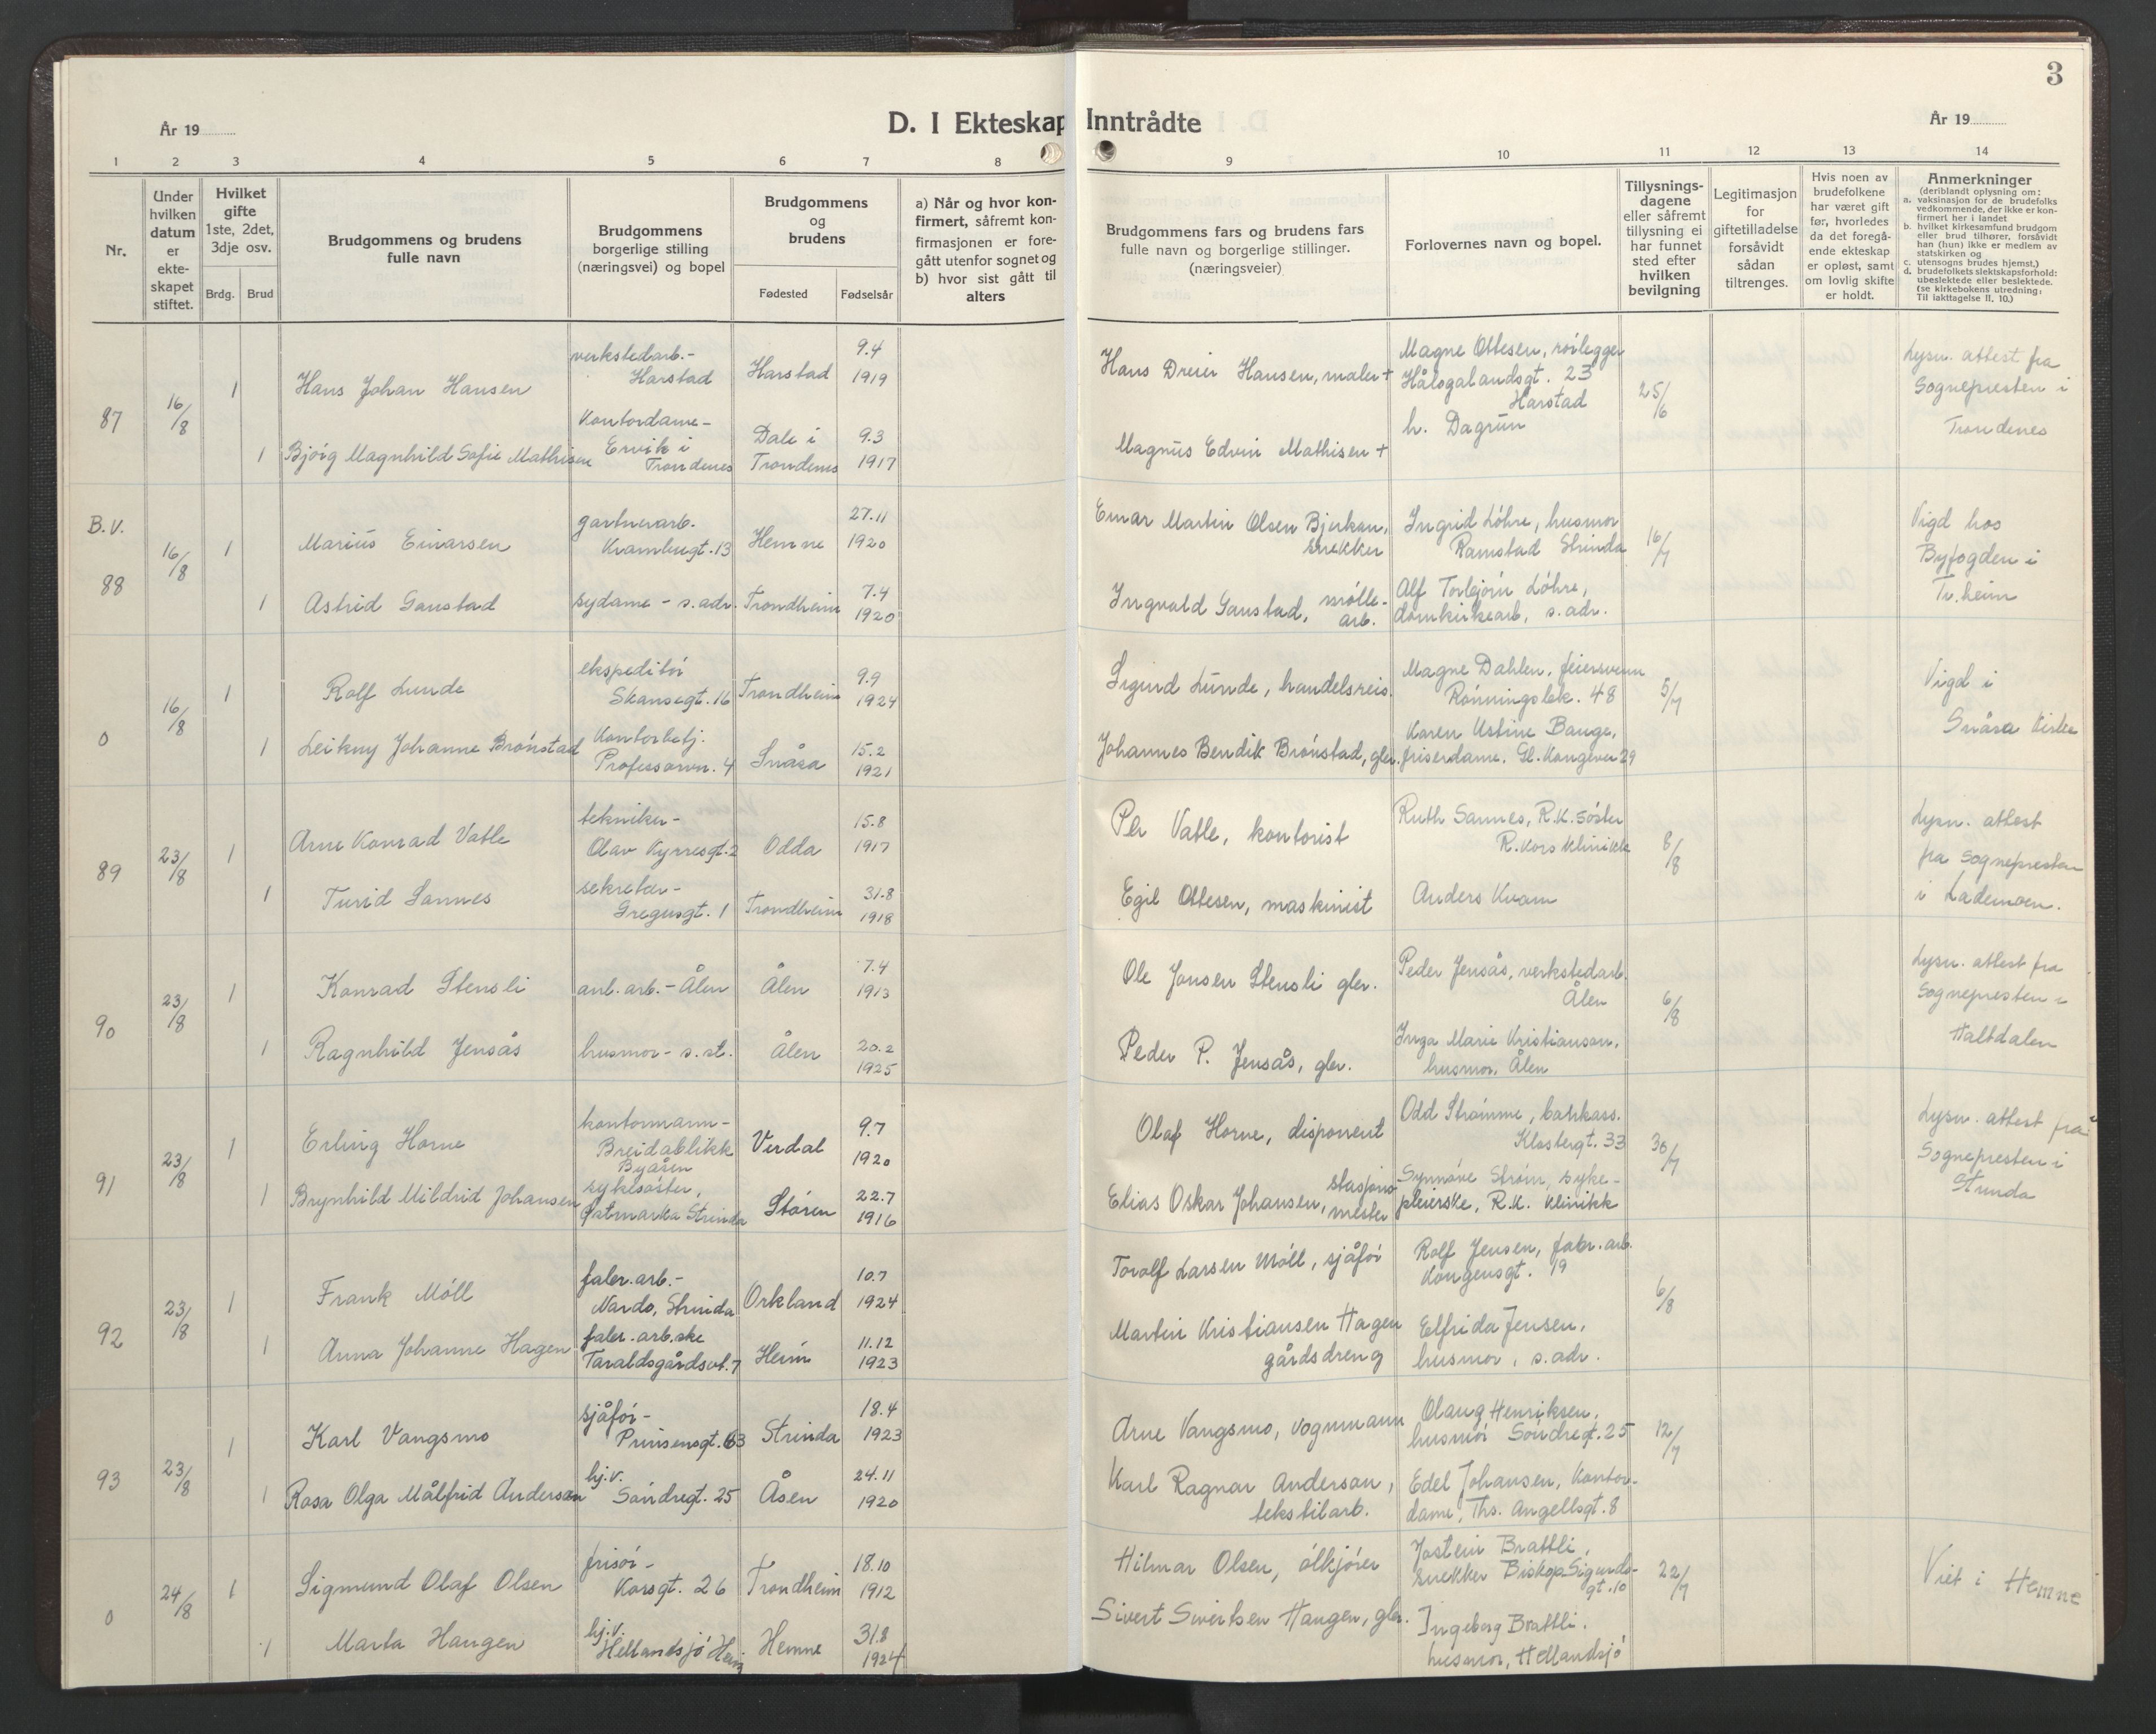 3
År 19
D. I Ekteskap Inntrådte
År 19
1 2 3 4 5 6 7 8 9 10 11 12 13 14
Nr.
Under hvilken datum er ekte- skapet stiftet.
Hvilket gifte 1ste, 2det, 3dje osv.
Brdg. Brud
Brudgommens og brudens fulle navn
Brudgommens borgerlige stilling (næringsvei) og bopel
Brudgommens og brudens
Fødested Fødselsår
a) Når og hvor kon- firmert, såfremt kon- firmasjonen er fore- gått utenfor sognet og b) hvor sist gått til alters
Brudgommens fars og brudens fars fulle navn og borgerlige stillinger. (næringsveier)
Forlovernes navn og bopel.
Tillysnings- dagene eller såfremt tillysning ei har funnet sted efter hvilken bevilgning
Legitimasjon for giftetilladelse forsåvidt sådan tiltrenges.
Hvis noen av brudefolkene har været gift før, hvorledes da det foregå- ende ekteskap er opløst, samt om lovlig skifte er holdt.
Anmerkninger
(deriblandt oplysning om:
a. vaksinasjon for de brudefolks vedkommende, der ikke er kon- firmert her i landet
b. hvilket kirkesamfund brudgom eller brud tilhører, forsåvidt han (hun) ikke er medlem av statskirken og
c. utensogns brudes hjemst.)
d. brudefolkets slektskapsforhold: ubeslektede eller beslektede.
(se kirkebokens utredning: Til iakttagelse II, 10.)
87 16/8 1 Hans Johan Hansen verkstedarb.- Harstad Harstad 9.4 1919 Hans Dreier Hansen, maler + Magne Ottesen, rörlegger Hålogalandsgt. 23 Harstad 25/6 Lysn. attest fra Sognepresten i Trondenes
1 Bjórg Magnhild Sofie Mathisen Kontordame - Ervik i Trondenes Dale i Trondenes 9.3 1917 Magnus Edvin Mathisen + h. Dagrun
B.V. 88 16/8 1 Marius Einarsen gartnerarb. Hemne 27.11 1920 Einar Martin Olsen Bjerkan, snekker Ingrid Löhre, husmor Ramstad Strinda 16/7 Vigd hos Byfogden i Tr.heim
1 Astrid Gaustad sydame - s.adr. Trondheim 7.4 1920 Ingvald Gaustad, mölle- arb. Alf Torbjörn Löhre, domkirkearb, s. adr.
0 16/8 1 Rolf Lunde ekspeditör Skansegt. 16 Trondheim 9.9 1924 Sigurd Lunde, handelsreis. Magne Dahlen, feiersvenn Rönningsbk. 48 5/7 Vigd i Snåsa Kirke
1 Leikny Johanne Brónstad Kontorbetj. Professorvn. 4 Snåsa 15.2 1921 Johannes Bendik Brónstad, gbr. Karen Ustine Bauge, friserdame. Gl. Kongevei 29
89 23/8 1 Arne Konrad Vatle tekniker - Olav Kyrresgt. 2 Odda 15.8 1917 Per Vatle, kontorist Ruth Sannes, R.K. söster R. Kors Klinikk 8/8 Lysn. attest fra Sognepresten i Lademoen.
1 Turid Sannes sekretær - Gregusgt. 1 Trondheim 31.8 1918 Egil Ottesen, maskinist Anders Kvam
90 23/8 1 Konrad Stensli anl. arb. - Ålen Ålen 7.4 1913 Ole Jonsen Stensli gbr. Peder Jensås, verkstedarb. Ålen 6/8 Lysn. attest fra Sognepresten i Haltdalen
1 Ragnhild Jensås husmor - s. st. Ålen 20.2 1925 Peder P. Jensås, gbr. Inga Marie Kristianson, husmor, Ålen
91 23/8 1 Erling Horne kontormann - Breidablikk Byåsen Verdal 9.7 1920 Olaf Horne, disponent Odd Strömme, Klostergt. 33 30/7 Lysn. attest frå Sognepresten i Strinda
1 Brynhild Mildrid Johansen sykesöster, Östmarka Strinda Stören 22.7 1916 Elias Oskar Johansen, stasjons mester Synnöve Ström, syke- pleierske, R.K. klinikk
92 23/8 1 Frank Möll fabr. arb. - Nardo, Strinda Orkland 10.7 1924 Torolf Larsen Möll, sjåför Rolf Jensen, fabr. arb. Kongensgt. 19 6/8
1 Anna Johanne Hagen fabr. arb.ske Taraldsgårdsvt. 7 Heim 11.12 1923 Martin Kristiansen Hagen gårdsdreng Elfrida Jensen, husmor, s. adr.
93 23/8 1 Karl Vangsmo sjåför - Prinsensgt. 63 Strinda 18.4 1923 Arne Vangsmo, vognmann Olaug Henriksen, husmor Söndregt. 25 12/7
1 Rosa Olga Målfrid Anderson hj.v. Söndregt. 25 Åsen 24.11 1920 Karl Ragnar Anderson, tekstilarb. Edel Johansen, Kontor- dame, Ths. Angellsgt. 8
0 24/8 1 Sigmund Olaf Olsen frisör - Korsgt. 26 Trondheim 18.10 1912 Hilmar Olsen, ölkjörer Jostein Brattli, snekker Biskop Sigurds- gt. 10 22/7 Viet i Hemne
1 Marta Haugen hj.v. Hellandsjö Heim Hemne 31.8 1924 Sivert Sivertsen Haugen, gbr. Ingeborg Brattli, husmor, Hellandsjö